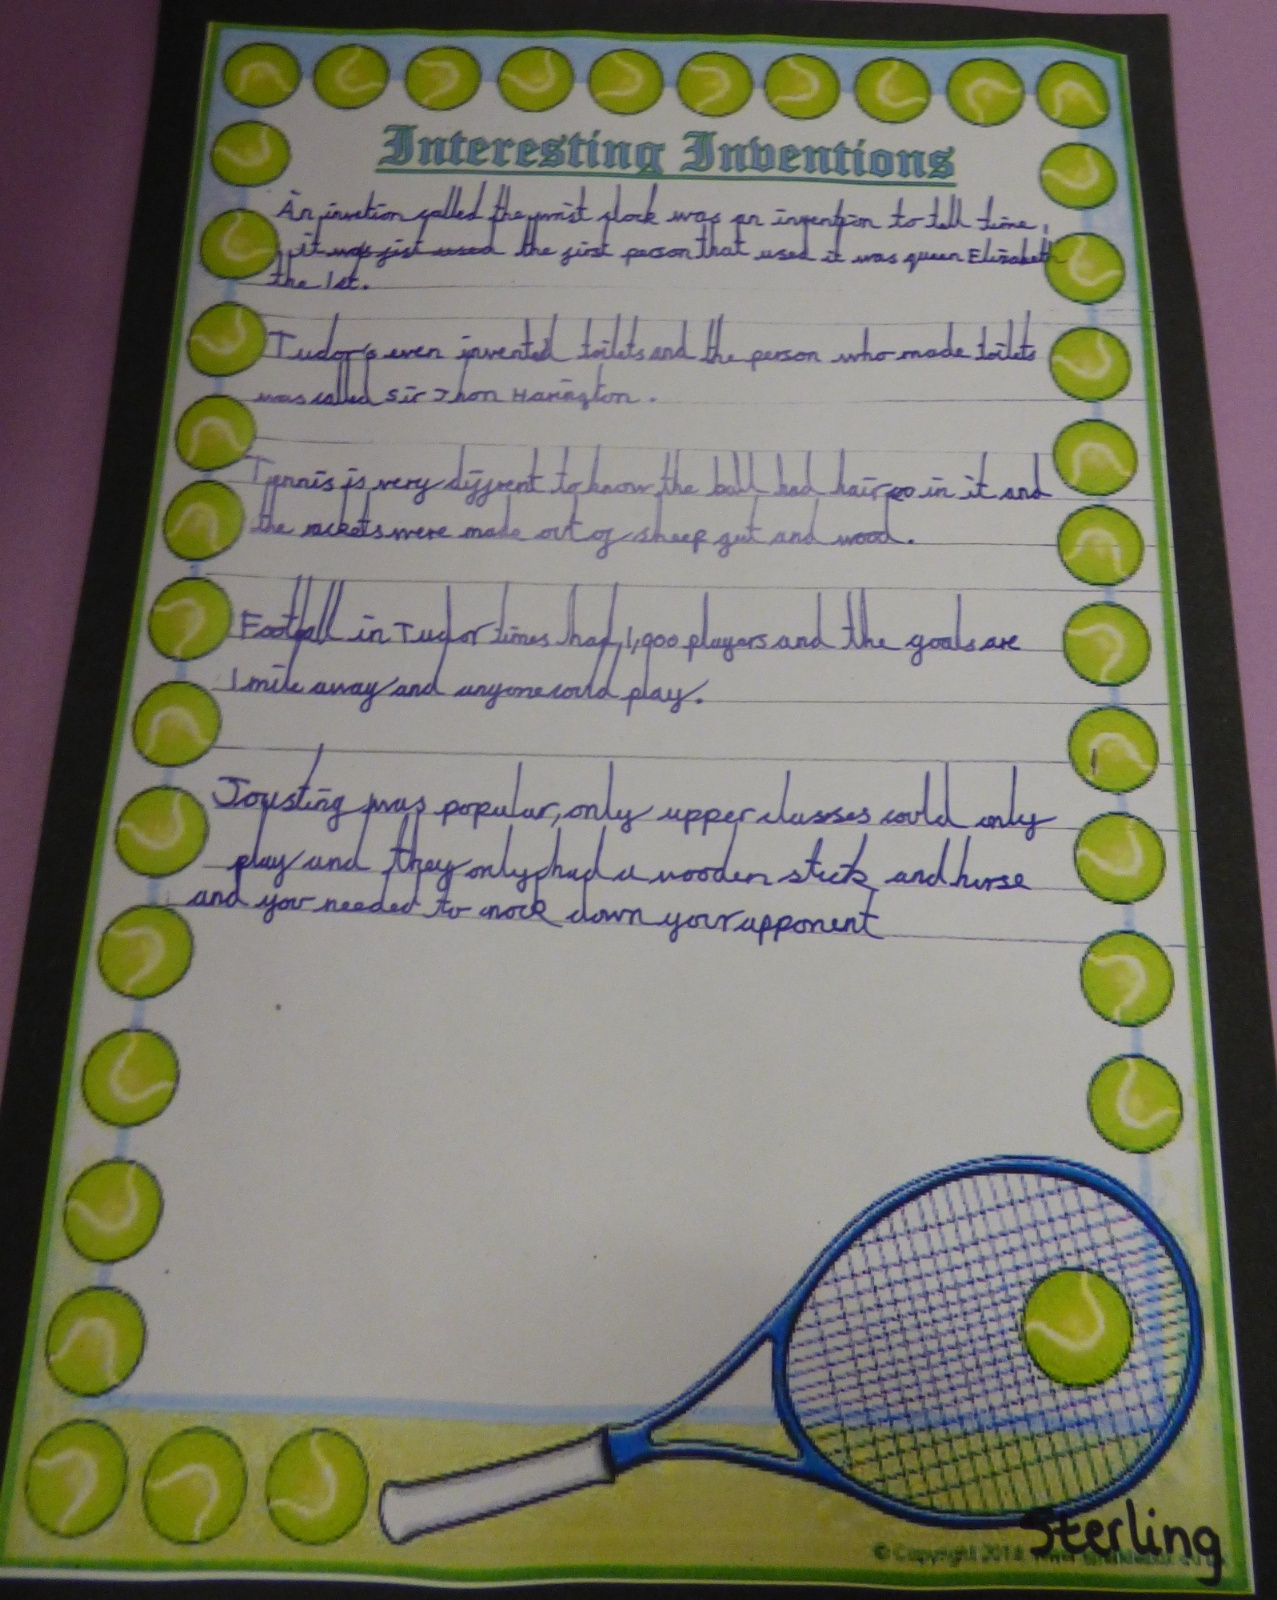 Interesting Inventions
An invetion called the wrist clock was an invention to tell time,
it was fist used the first person that used it was queen Elizabeth
the 1st.
Tudor's even invented toilets and the person who made toilets
was called Sir Jhon Harington.
Tennis is very diffrent to know the ball had hair in it and
the rackets were made out of sheep gut and wood.
Football in Tudor times had 1,000 players and the goals are
1 mile away and anyone could play.
Jousting was popular, only upper classes could only
play and they only had a wooden stick and horse
and you needed to nock down your apponent
Sterling
© Copyright